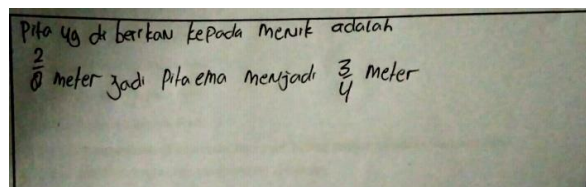 Pita yg di berikan kepada menik adalah
2/8 meter zadi Pita ema menjadi 3/4 meter